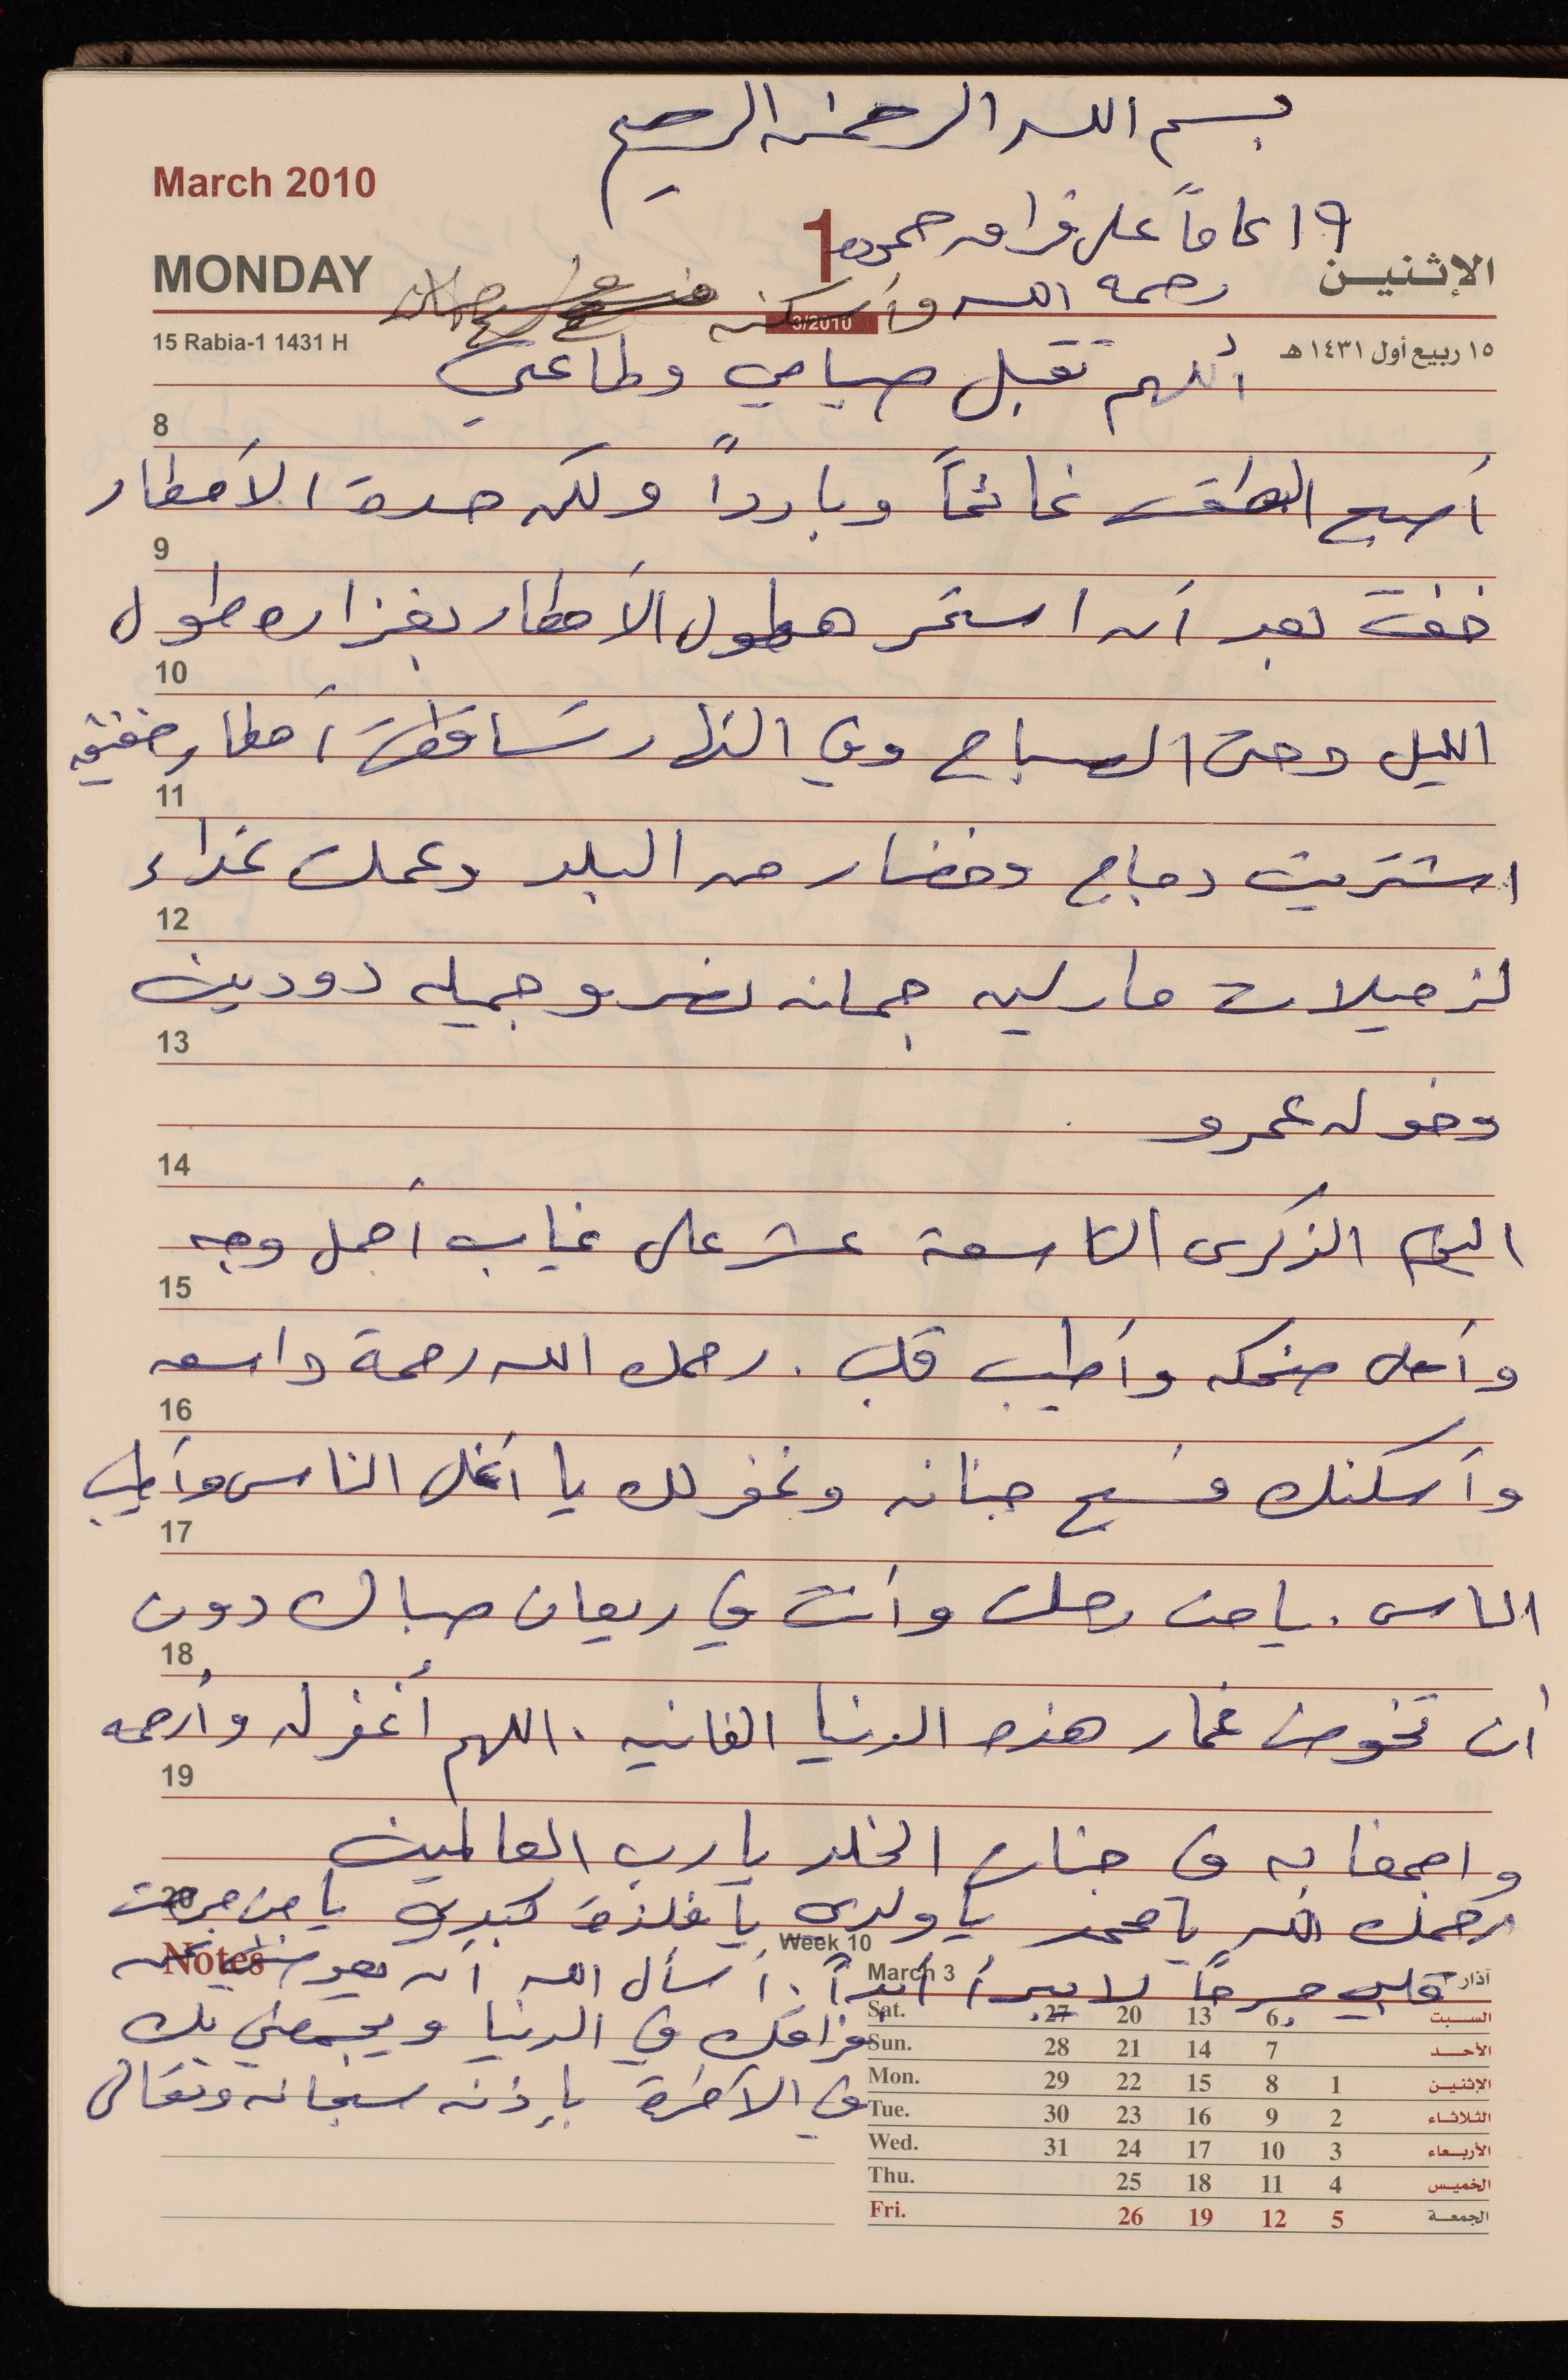 بسم الله الرحمن الرحيم
March 2010
١٩ عاماً على فراق حموده
1
MONDAY
الإثنين
رحمه الله وأسكنه فسيح جنانه
3/2010
15 Rabia-1 1431 H
١٥ ربيع أول ١٤٣١ هـ
اللهم تقبل صيامي وطاعتي
8
أصبح الطقس غائماً وبارداً ولكن حدة الأمطار
9
خفت بعد أن استمر هطول الأمطار بغزاره طول
10
الليل وحتى الصباح وفي النهار تساقطت أمطار خفيفه
11
اشتريت دجاج وخضار من البلد وعملت غداء
12
لزميلات مارلين جمانه نصر وجميله دودين
13
وخوله عمرو
14
اليوم الذكرى التاسعة عشر على غياب أجمل وجه
15
وأحلى ضحكه وأطيب قلب . رحمك الله رحمة واسعه
16
وأسكنك فسيح جنانه وغفر لك يا أغلى الناس وأطيب
17
الناس . يا من رحلت وأنت في ريعان صباك دون
18
أن تخوض غمار هذه الدنيا الفانيه . اللهم أغفر له وأرحمه
19
واجمعنا به في جنات الخلد يا رب العالمين
20
رحمك الله يا محمد يا ولدي يا فلذة كبدي يا من جرحت
Notes
Week 10
قلبي جرحاً لا يبرأ أبداً . أسأل الله أن يعوضني عن
فراقك في الدنيا ويجمعني بك
في الآخرة بإذنه سبحانه وتعالى
March 3
آذار ٣
Sat. 27 20 13 6 السبت
Sun. 28 21 14 7 الأحد
Mon. 29 22 15 8 1 الإثنين
Tue. 30 23 16 9 2 الثلاثاء
Wed. 31 24 17 10 3 الأربعاء
Thu. 25 18 11 4 الخميس
Fri. 26 19 12 5 الجمعة